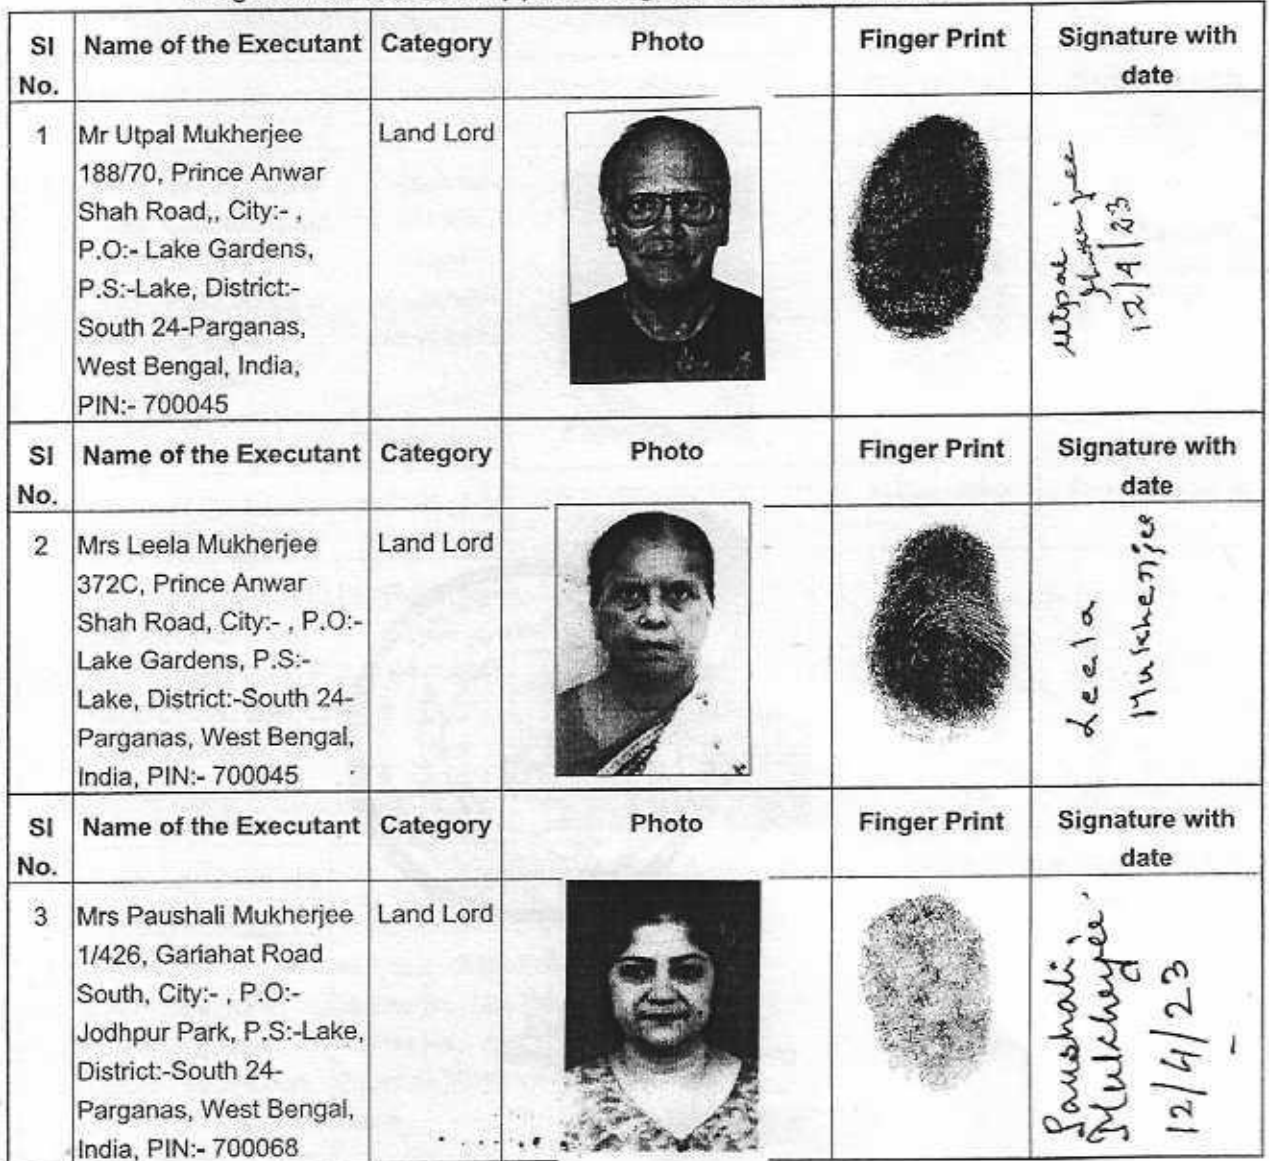 Sl No. | Name of the Executant | Category | Photo | Finger Print | Signature with date
1 | Mr Utpal Mukherjee | Land Lord
188/70, Prince Anwar
Shah Road,, City:- ,
P.O:- Lake Gardens,
P.S:-Lake, District:-
South 24-Parganas,
West Bengal, India,
PIN:- 700045
Utpal
12/4/23
Sl No. | Name of the Executant | Category | Photo | Finger Print | Signature with date
2 | Mrs Leela Mukherjee | Land Lord
372C, Prince Anwar
Shah Road, City:- , P.O:-
Lake Gardens, P.S:-
Lake, District:-South 24-
Parganas, West Bengal,
India, PIN:- 700045
Leela
Mukherjee
Sl No. | Name of the Executant | Category | Photo | Finger Print | Signature with date
3 | Mrs Paushali Mukherjee | Land Lord
1/426, Gariahat Road
South, City:- , P.O:-
Jodhpur Park, P.S:-Lake,
District:-South 24-
Parganas, West Bengal,
India, PIN:- 700068
Paushali
Mukherjee
12/4/23